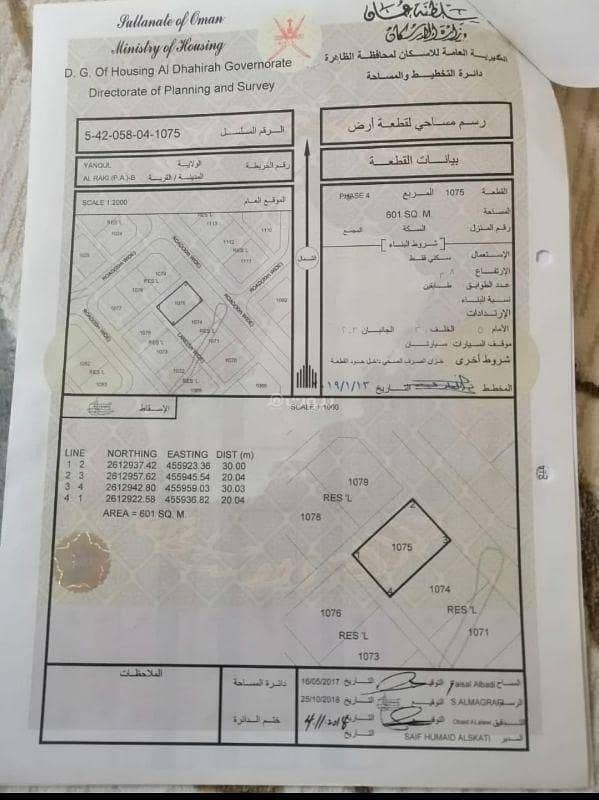 Sultanate of Oman
Ministry of Housing
D. G. Of Housing Al Dhahirah Governorate
Directorate of Planning and Survey
سلطنة عمان
وزارة الإسكان
المديرية العامة للاسكان لمحافظة الظاهرة
دائرة التخطيط والمساحة
5-42-058-04-1075
الرقم المسلسل
رسم مساحي لقطعة أرض
YANQUL
الولاية
رقم الخريطة
AL RAKI (P.A.)-B
المدينة / القرية
بيانات القطعة
SCALE 1:2000
الموقع العام
القطعة 1075 المربع PHASE 4
المساحة 601 SQ. M.
رقم المنزل السكة المجمع
شروط البناء
الإستعمال سكني فقط
الإرتفاع ٨ م
عدد الطوابق طابقين
نسبة البناء
الإرتدادات
الأمام ٥ الخلف ٣ الجانبان ٢،٣
موقف السيارات سيارتان
شروط أخرى خزان الصرف الصحي داخل حدود القطعة
المخطط التاريخ
الشمال
RES'L
1113
1110
1112
RES'L
1111
1079
1078
1077
1075
1074
1076
RES'L
1073
1071
1072
RES'L
1070
1069
RES'L
1083
الإسقاط
SCALE 1:1000
LINE NORTHING EASTING DIST (m)
1 2 2612937.42 455923.36 30.00
2 3 2612957.62 455945.54 20.04
3 4 2612942.80 455959.03 30.03
4 1 2612922.58 455936.82 20.04
AREA = 601 SQ. M.
1079
RES 'L
1078
2
1075
3
1
4
1074
1076
RES 'L
RES 'L
1071
1073
الملاحظات
دائرة المساحة
ختم الدائرة
المساح Faisal Albadi التوقيع التاريخ 16/05/2017
الرسام S.ALMAGRAFI التوقيع التاريخ 25/10/2018
التدقيق التوقيع التاريخ 4/11/2018
المدير SAIF HUMAID ALSKATI التاريخ